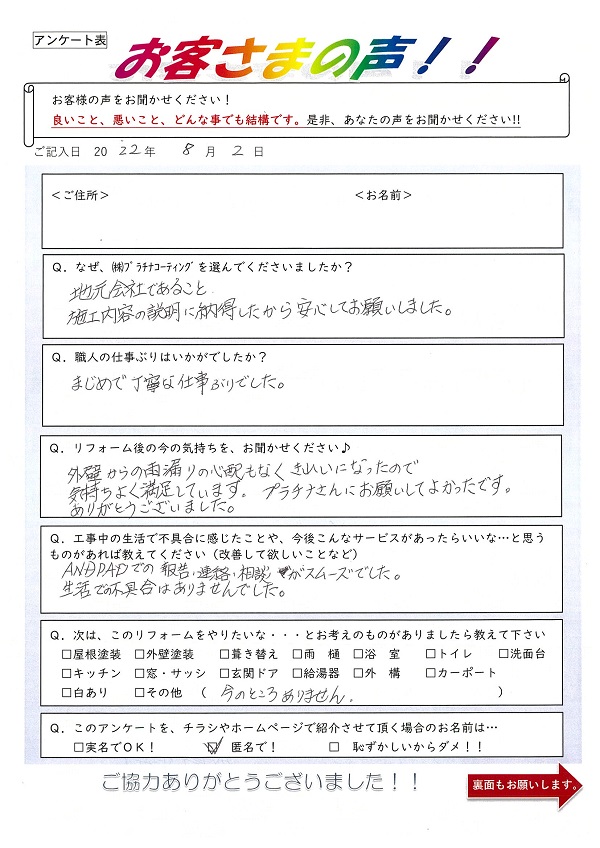 アンケート表
お客さまの声！！
お客様の声をお聞かせください！
良いこと、悪いこと、どんな事でも結構です。是非、あなたの声をお聞かせください!!
ご記入日 2022年 8月 2日
＜ご住所＞ ＜お名前＞
Q．なぜ、㈱ﾌﾟﾗﾁﾅｺｰﾃｨﾝｸﾞを選んでくださいましたか？
地元会社であること
施工内容の説明に納得したから安心してお願いしました。
Q．職人の仕事ぶりはいかがでしたか？
まじめで丁寧な仕事ぶりでした。
Q．リフォーム後の今の気持ちを、お聞かせください♪
外壁からの雨漏りの心配もなくきれいになったので
気持ちよく満足しています。プラチナさんにお願いしてよかったです。
ありがとうございました。
Q．工事中の生活で不具合に感じたことや、今後こんなサービスがあったらいいな…と思う
ものがあれば教えてください（改善して欲しいことなど）
ANDPADでの報告、連絡、相談がスムーズでした。
生活での不具合はありませんでした。
Q．次は、このリフォームをやりたいな・・・とお考えのものがありましたら教えて下さい
□屋根塗装 □外壁塗装 □葺き替え □雨　樋 □浴　室 □トイレ □洗面台
□キッチン □窓・サッシ □玄関ドア □給湯器 □外　構 □カーポート
□白あり □その他 （ 今のところありません。 ）
Q．このアンケートを、チラシやホームページで紹介させて頂く場合のお名前は…
□実名でOK！ ☑ 匿名で！ □ 恥ずかしいからダメ！！
ご協力ありがとうございました！！
裏面もお願いします。